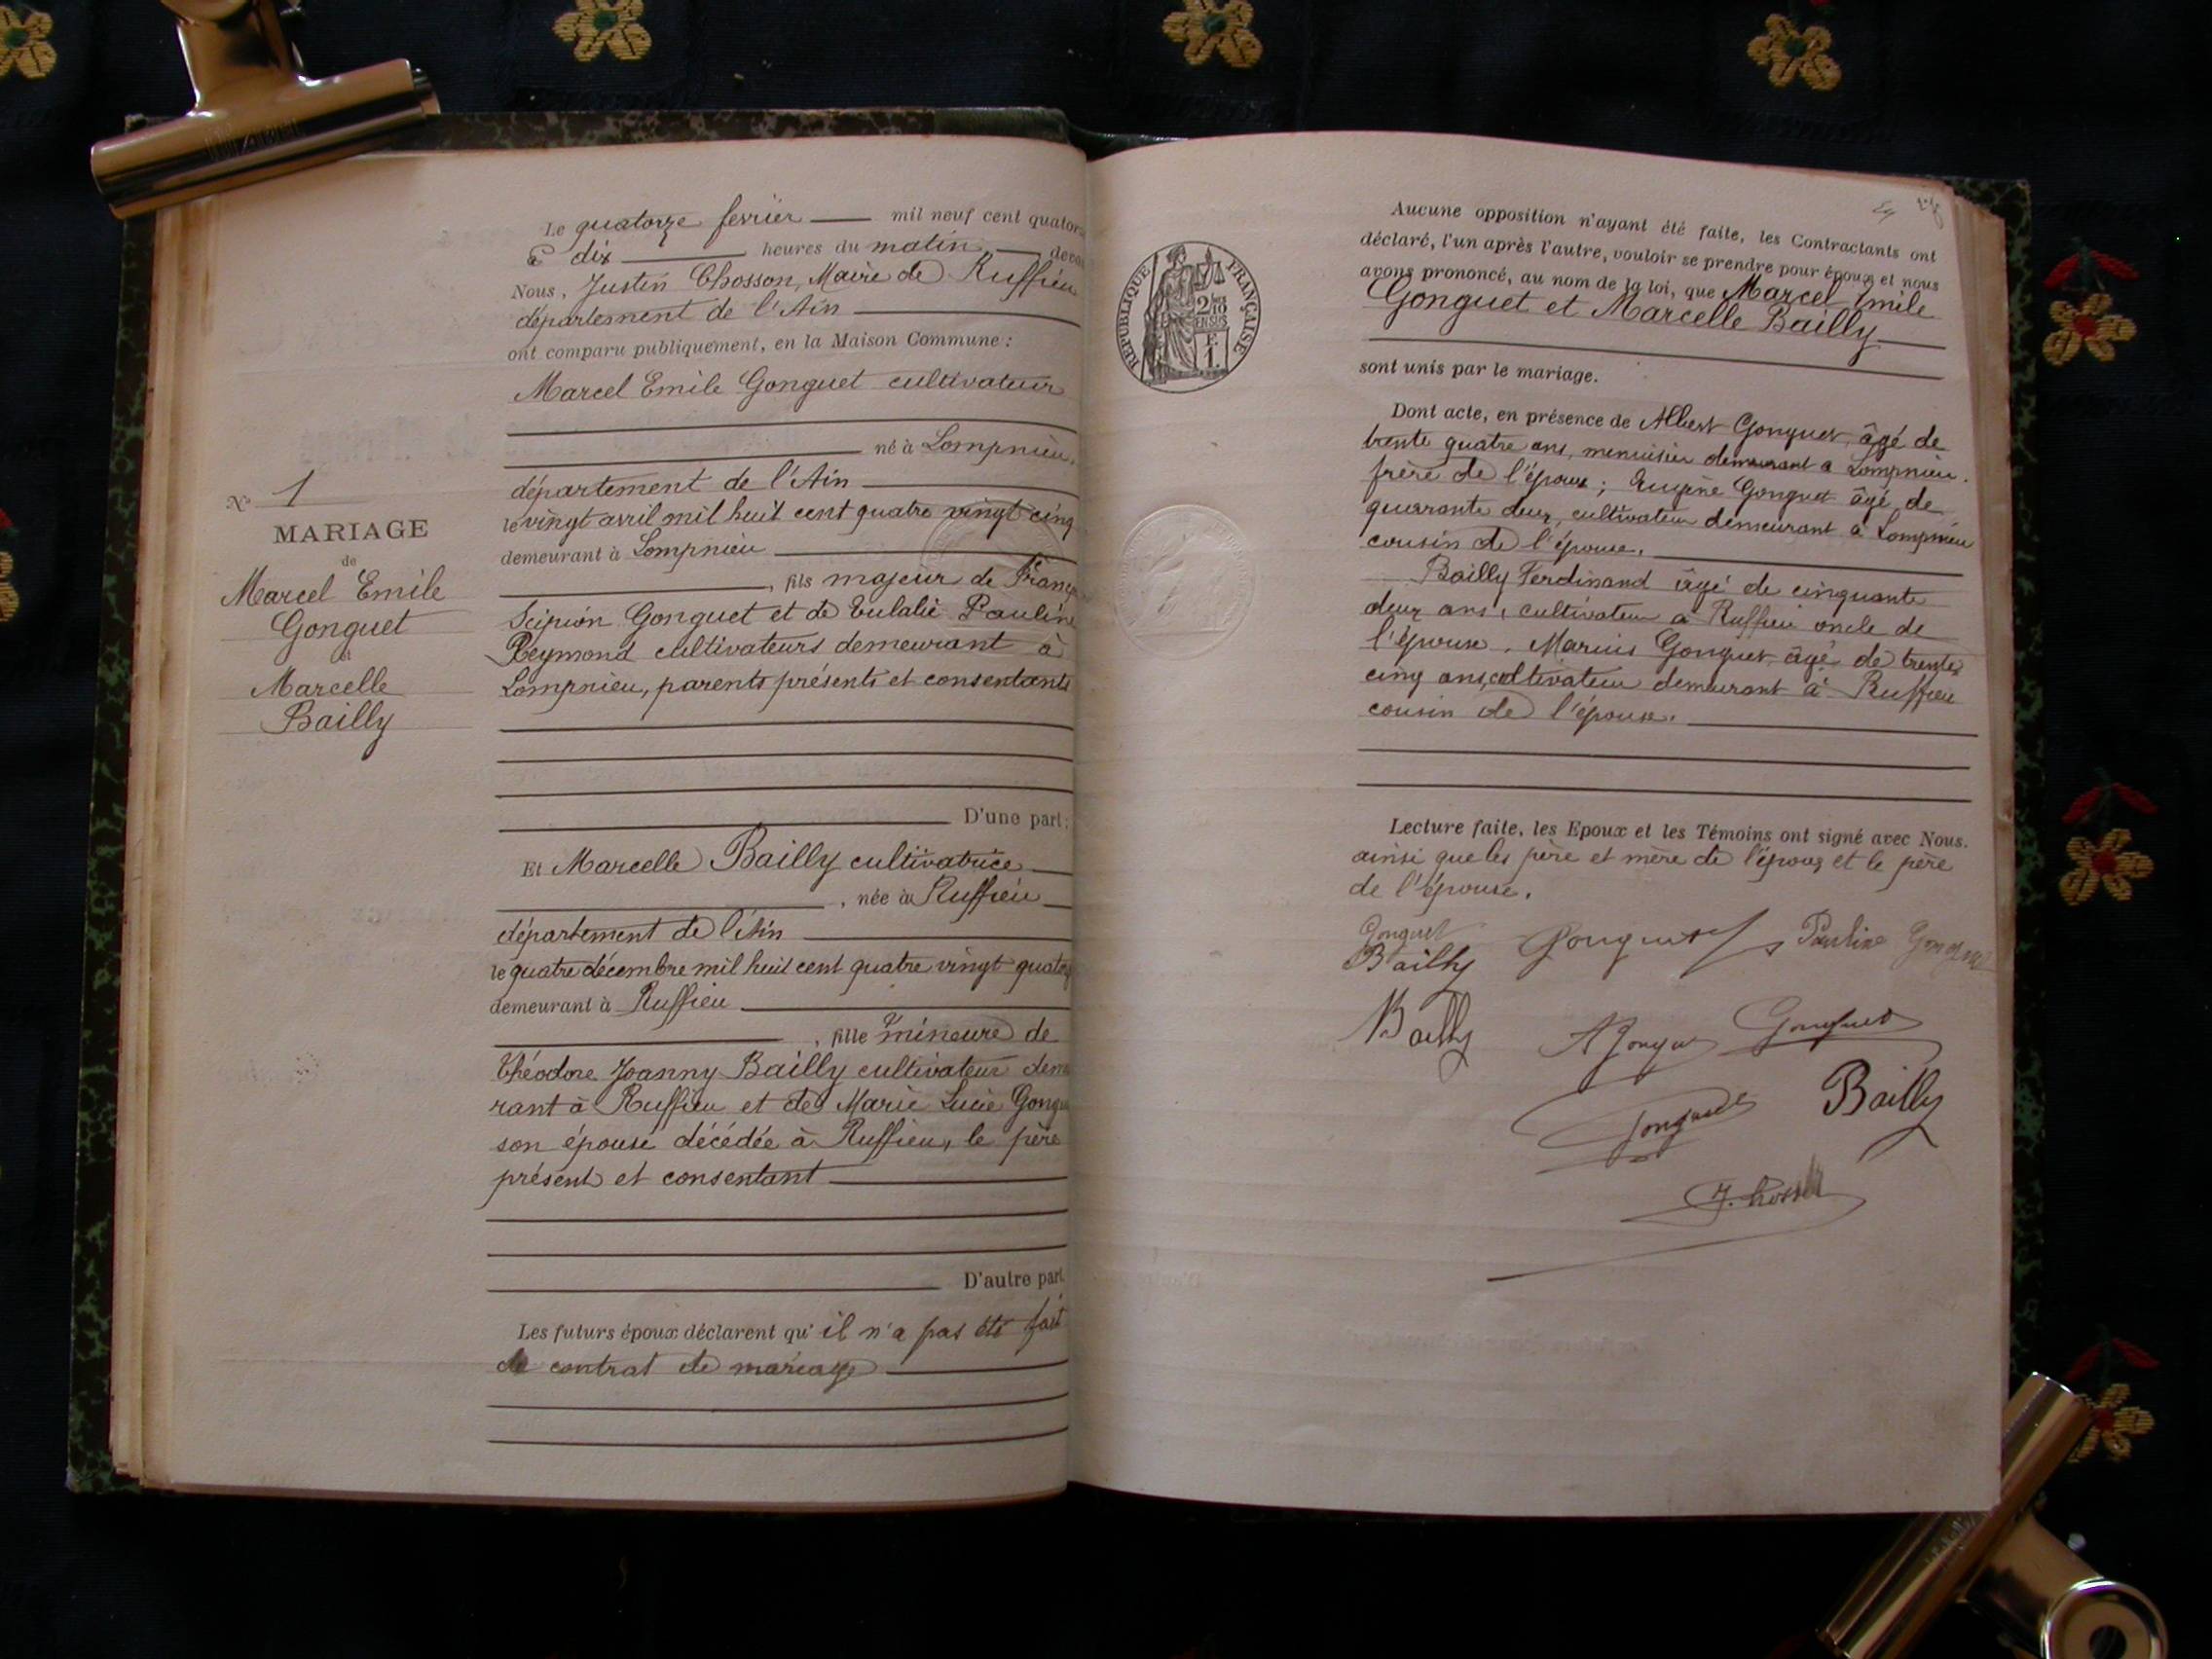 Le quatorze fevrier mil neuf cent quator
à dix heures du matin, deva
Nous, Justin Chosson, Maire de Ruffieu
département de l'Ain
ont comparu publiquement, en la Maison Commune :
Marcel Emile Gonguet cultivateur
né à Lompnieu,
département de l'Ain
le vingt avril mil huit cent quatre vingt cinq
demeurant à Lompnieu
, fils majeur de Franç
Scipion Gonguet et de Eulalie Pauline
Reymond cultivateurs demeurant à
Lompnieu, parents présents et consentants
D'une part ;
Et Marcelle Bailly cultivatrice
, née à Ruffieu
département de l'Ain
le quatre décembre mil huit cent quatre vingt quator
demeurant à Ruffieu
, fille mineure de
Théodore Joanny Bailly cultivateur deme
rant à Ruffieu et de Marie Lucie Gongu
son épouse décédée à Ruffieu, le père
présent et consentant
D'autre part.
Les futurs époux déclarent qu'il n'a pas été fait
de contrat de mariage
N° 1
MARIAGE
de
Marcel Emile
Gonguet
et
Marcelle
Bailly
RÉPUBLIQUE FRANÇAISE
2/10
EN SUS
F.
1.
Aucune opposition n'ayant été faite, les Contractants ont
déclaré, l'un après l'autre, vouloir se prendre pour époux et nous
avons prononcé, au nom de la loi, que Marcel Emile
Gonguet et Marcelle Bailly
sont unis par le mariage.
Dont acte, en présence de Albert Gonguet, âgé de
trente quatre ans, menuisier demeurant à Lompnieu.
frère de l'époux ; Eugène Gonguet âgé de
quarante deux, cultivateur demeurant à Lompnieu
cousin de l'épouse.
Bailly Ferdinand âgé de cinquante
deux ans, cultivateur à Ruffieu oncle de
l'épouse, Marius Gonguet, âgé de trente
cinq ans, cultivateur demeurant à Ruffieu
cousin de l'épouse.
Lecture faite, les Epoux et les Témoins ont signé avec Nous.
ainsi que les père et mère de l'époux et le père
de l'épouse.
Gonguet Gonguet Pauline Gonguet
Bailly
Bailly A Gonguet Gonguet
Gonguet Bailly
J. Chosson